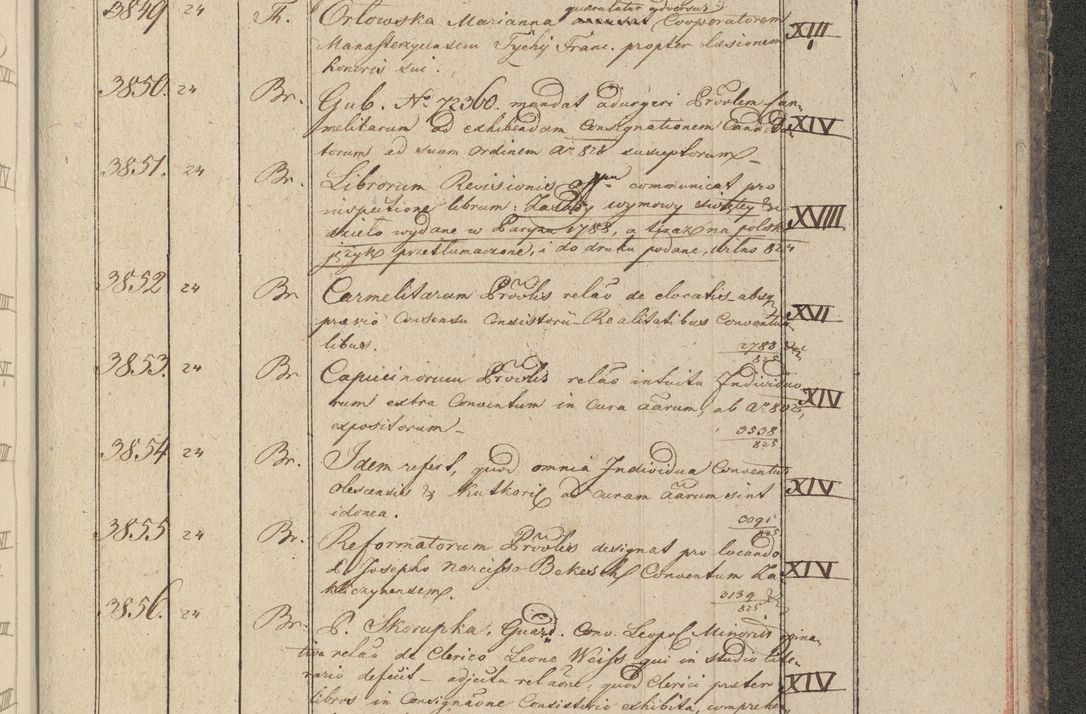 3849 24 Th. Orlowska Marianna queruletur adversus Cooperatorem XIII
Manasterzycensem Tychy Franc. propter laesionem
honoris sui.
3850. 24 Br. Gub. No 72360. mandat adurgeri Provlem Car-
melitarum ad exhibendam Consignationem Candida- XIV
torum ad suum ordinem Ao 828 susceptorum
3851. 24 Br. Librorum Revisionis communicat pro
inspectione librum: Zasady wymowy Swiętey XVIII
dzieło wydane w Paryżu 1788, a teraz na polski
język przetłumaczone, i do druku podane, Wilno 824
3852 24 Br Carmelitarum Provlis relaõ de elocatis absq
praevio Consensu Consistorii Realitatibus Conventua- XVI
libus. 2788
825
3853. 24 Br Capucinorum Provlis relaõ intuitu Individuo
rum extra Conventum in Cura aãrum, ab Ao 802, XIV
expositorum 3538
825
3854 24 Br. Idem refert, quod omnia Individua Conventus
Olescensis & Kutkoris ad curam aãrum sint XIV
idonea. 3091
825
3855 24 Br. Reformatorum Provlis designat pro locando
Josepho Narcisso Bekesch Conventum Ra- XIV
kliczyhensem. 0139
825
3856. 24 Br. P. Skorupka. Guard. Conv. Leopol Minorit opina-
tive relaõ de Clerico Leone Weiss qui in studio lite-
rario deficit – adjecta relaõne, quod Clerici praeter XIV
libros in Consignaõne Consistorio exhibita, comprehen